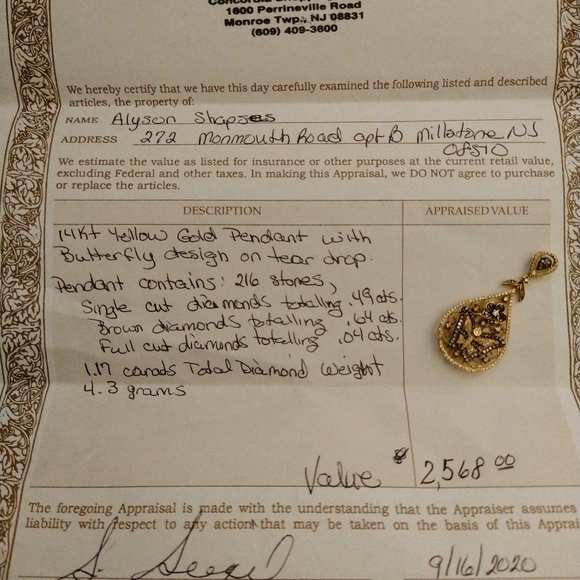 1600 Perrineville Road
Monroe Twp., NJ 08831
(609) 409-3600
We hereby certify that we have this day carefully examined the following listed and described
articles, the property of:
NAME Alyson Shapses
ADDRESS 272 Monmouth Road apt B Millstone NJ
08510
We estimate the value as listed for insurance or other purposes at the current retail value,
excluding Federal and other taxes. In making this Appraisal, we DO NOT agree to purchase
or replace the articles.
DESCRIPTION APPRAISED VALUE
14Kt Yellow Gold Pendant with
Butterfly design on tear drop.
Pendant contains: 216 stones,
Single cut diamonds totalling .49 cts.
Brown diamonds totalling .64 cts.
Full cut diamonds totalling .04 cts.
1.17 carads Total Diamond Weight
4.3 grams
Value $ 2,568 00
The foregoing Appraisal is made with the understanding that the Appraiser assumes
liability with respect to any action that may be taken on the basis of this Apprai
9/16/2020